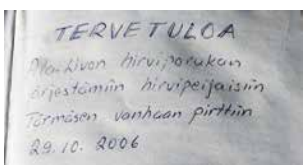 TERVETULOA
Ala-Kivon hirviporukan
järjestämiin hirvipeijaisiin
Törmäsen vanhaan pirttiin
29.10. 2006